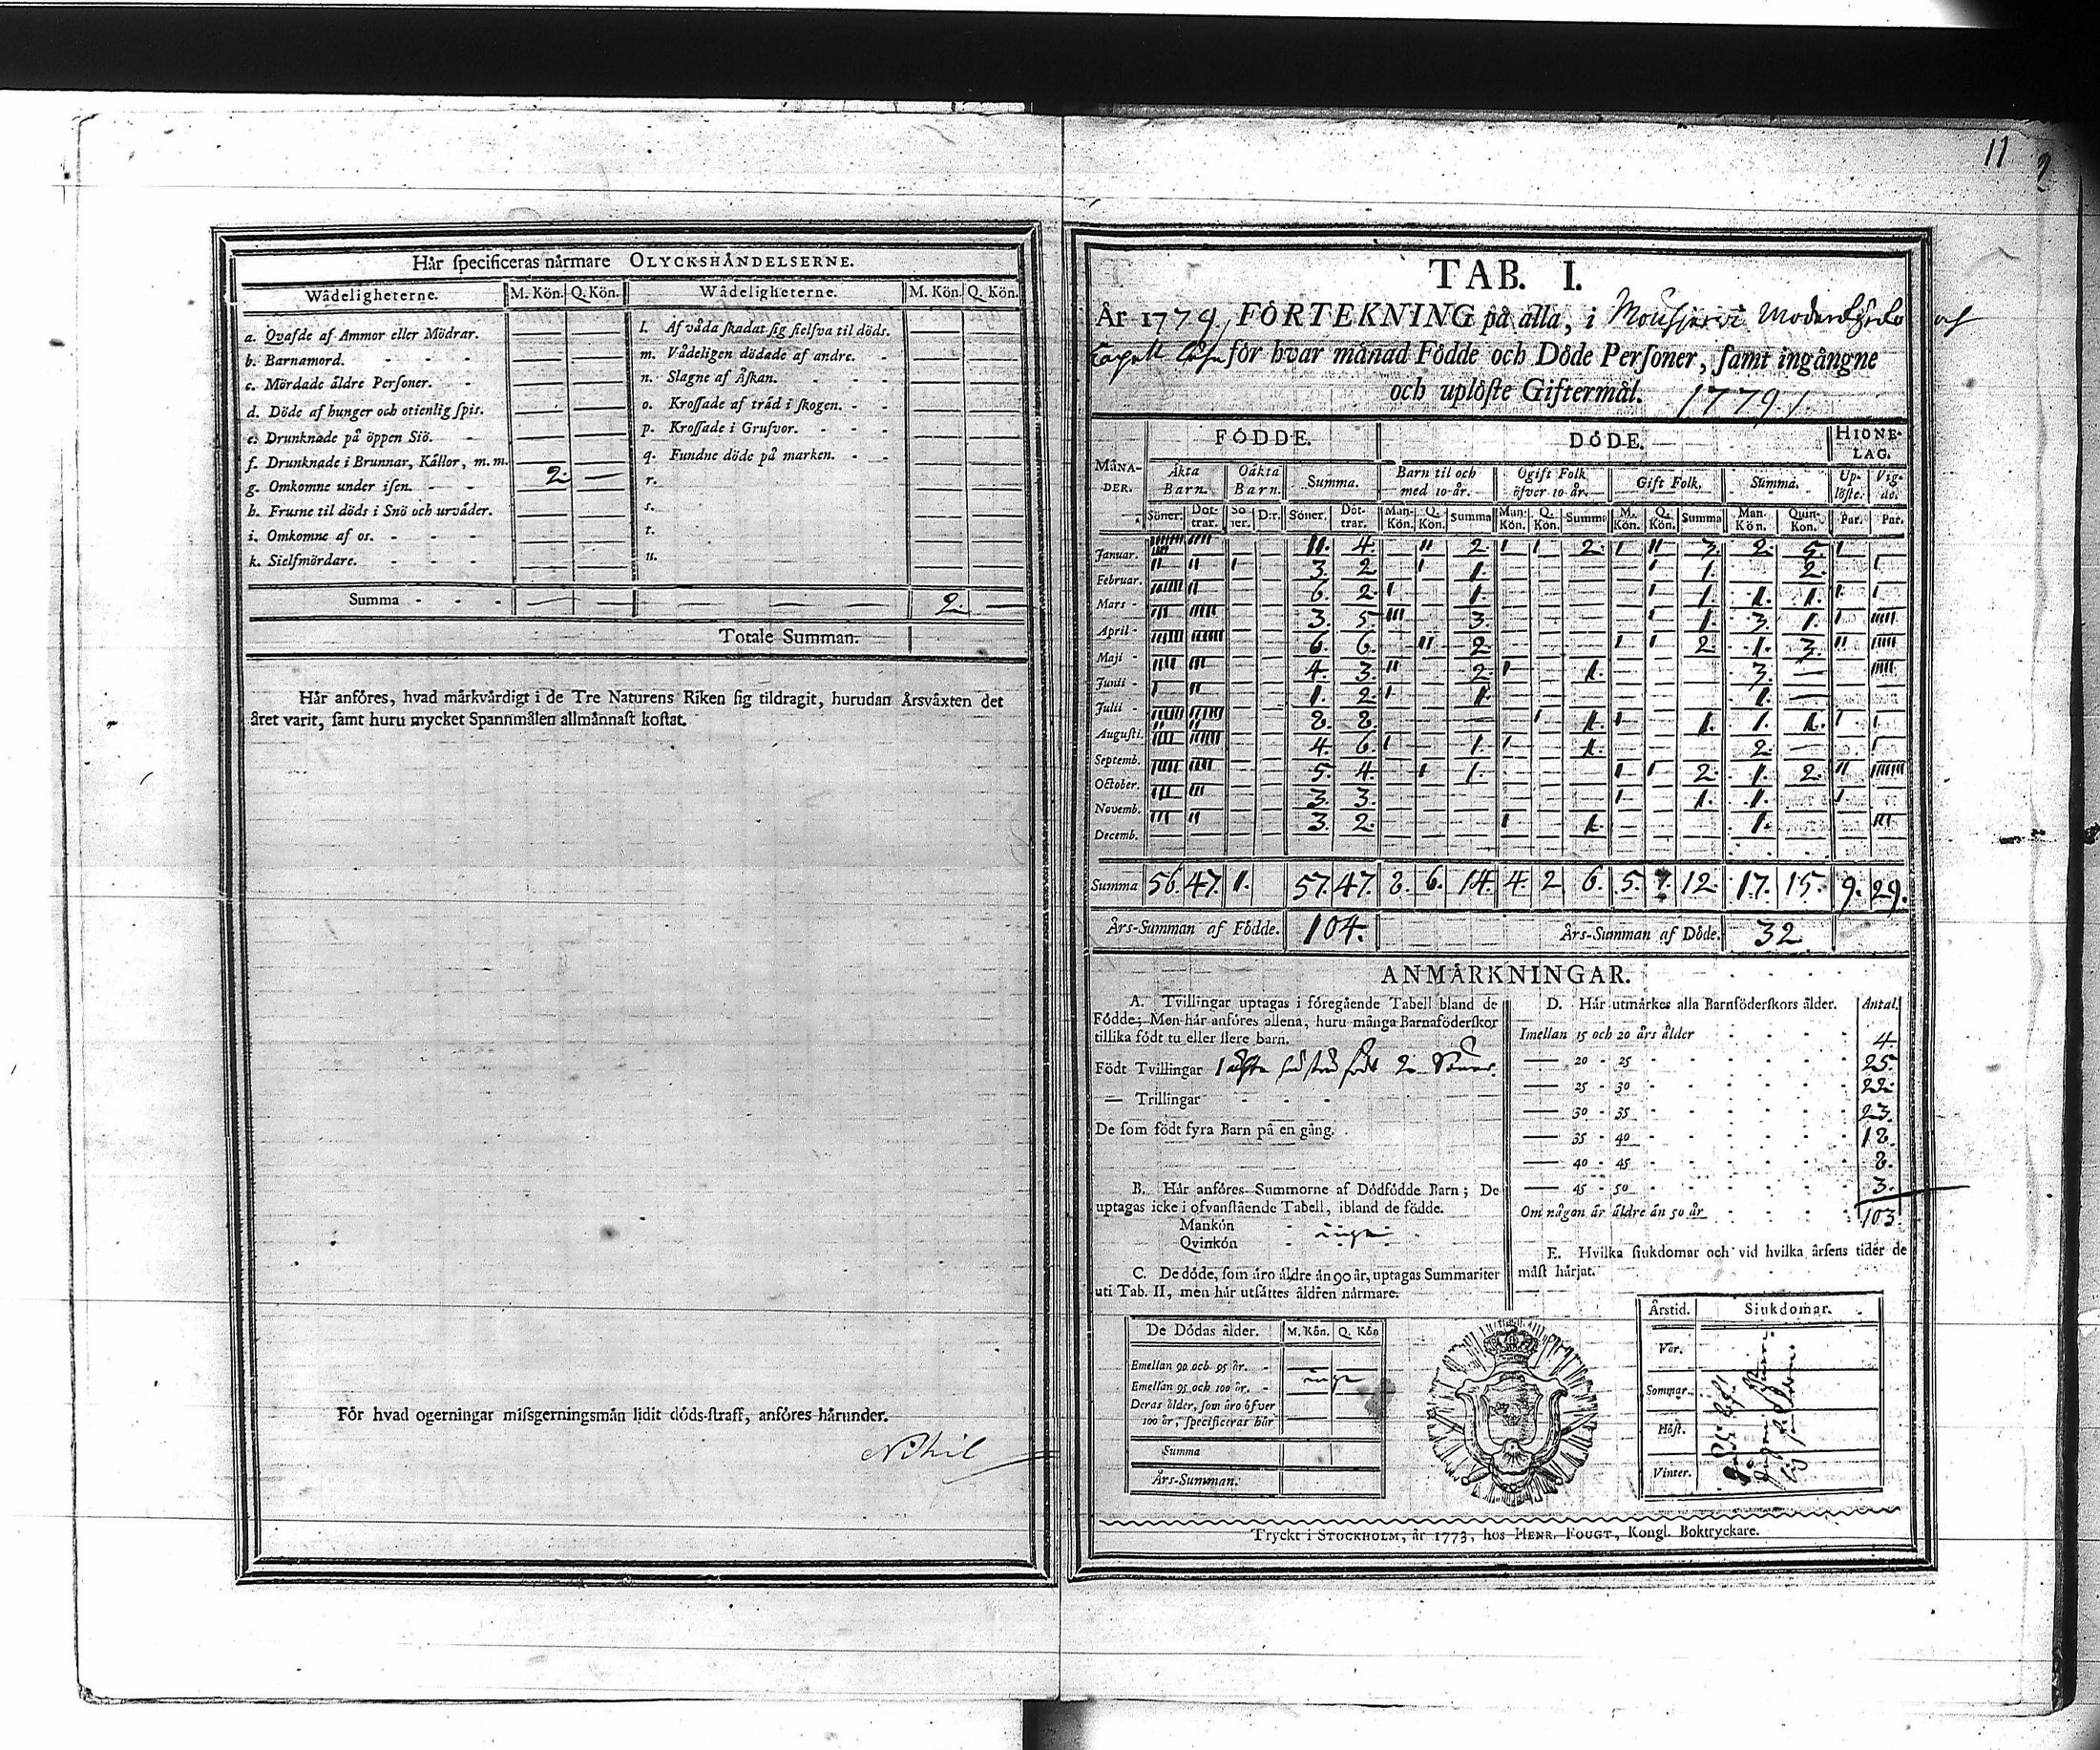 11 2
Hår specificeras nårmare OLYCKSHÅNDELSERNE.
Wådeligheterne. M. Kön. Q. Kön. Wådeligheterne. M. Kön. Q. Kön.
a. Qvafde af Ammor eller Mödrar. — — l. Af våda skadat sig sielfva til döds. — —
b. Barnamord. — — m. Vådeligen dödade af andre. — —
c. Mördade åldre Personer. — — n. Slagne af Åskan. — —
d. Döde af hunger och otienlig spis. — — o. Krossade af tråd i skogen. — —
e. Drunknade på öppen Siö. — — p. Krossade i Grufvor. — —
f. Drunknade i Brunnar, Kållor, m. m. 2. — q. Fundne döde på marken. — —
g. Omkomne under isen. — — r.
h. Frusne til döds i Snö och urvåder. — — s.
i. Omkomne af os. — — t.
k. Sielfmördare. — — u.
Summa - - - — — 2 —
Totale Summan.
Hår anföres, hvad mårkvårdigt i de Tre Naturens Riken sig tildragit, hurudan Årsvåxten det
året varit, samt huru mycket Spannmålen allmånnast kostat.
För hvad ogerningar missgerningsmån lidit döds-straff, anföres hårunder.
Nihil
TAB. I.
År 1779, FÖRTEKNING på alla, i
för hvar månad Födde och Döde Personer, samt ingångne
och uplöste Giftermål. 1779
MÅNADER. FÖDDE. DÖDE. HIONELAG.
Åkta Barn. Oåkta Barn. Summa. Barn til och med 10 år. Ogift Folk öfver 10 år. Gift Folk. Summa. Uplöste. Vigde.
Söner. Döttrar. Söner. D:r. Söner. Döttrar. Man-Kön. Q. Kön. Summa Man-Kön. Q. Kön. Summa M. Kön. Q. Kön. Summa Man. Kön. Quin-Kon. Par. Par.
Januar. 11. 4. 2. 2. 3. 2. 5.
Februar. 3. 2 1. 1. 2.
Mars 6. 2. 1. 1. 1. 1.
April 3. 5. 3. 1. 3. 1.
Maji 6. 6. 2. 2 1. 3.
Junii 4. 3. 2 1. 3.
Julii 1. 2. 1. 1.
Augusti. 8. 8. 1. 1. 1. 1.
Septemb. 4. 6. 1. 1. 2.
October. 5. 4. 1. 2. 1. 2.
Novemb. 3. 3. 1. 1.
Decemb. 3. 2. 1. 1.
Summa 56. 47. 1. 57. 47. 8. 6. 14. 4. 2 6. 5. 7. 12. 17. 15. 9. 29.
Års-Summan af Födde. 104. Års-Summan af Döde. 32
ANMÅRKNINGAR.
A. Tvillingar uptagas i föregående Tabell bland de
Födde; Men hår anföres allena, huru många Barnaföderskor
tillika födt tu eller flere barn.
Födt Tvillingar 1 2
— Trillingar - - -
De som födt fyra Barn på en gång.
B. Hår anföres Summorne af Dödfödde Barn; De
uptagas icke i ofvanstående Tabell, ibland de födde.
Mankön
Qvinkön
inga
C. De döde, som åro åldre ån 90 år, uptagas Summariter
uti Tab. II, men hår utsåttes åldren nårmare.
De Dödas ålder. M. Kön. Q. Kön
Emellan 90 och 95 år. -
inga
Emellan 95 och 100 år. -
Deras ålder, som åro öfver
100 år, specificeras hår
Summa
Års-Summan.
D. Hår utmårkes alla Barnföderskors ålder. Antal.
Imellan 15 och 20 års ålder 4.
— 20 - 25 25.
— 25 - 30 22.
— 30 - 35 23.
— 35 - 40 18.
— 40 - 45 8.
— 45 - 50 3.
Om någon år åldre ån 50 år 103
E. Hvilka siukdomar och vid hvilka årsens tider de
måst hårjat.
Årstid. Siukdomar.
Vår.
Sommar.
Höst.
Vinter.
Tryckt i STOCKHOLM, år 1773, hos HENR. FOUGT, Kongl. Boktryckare.